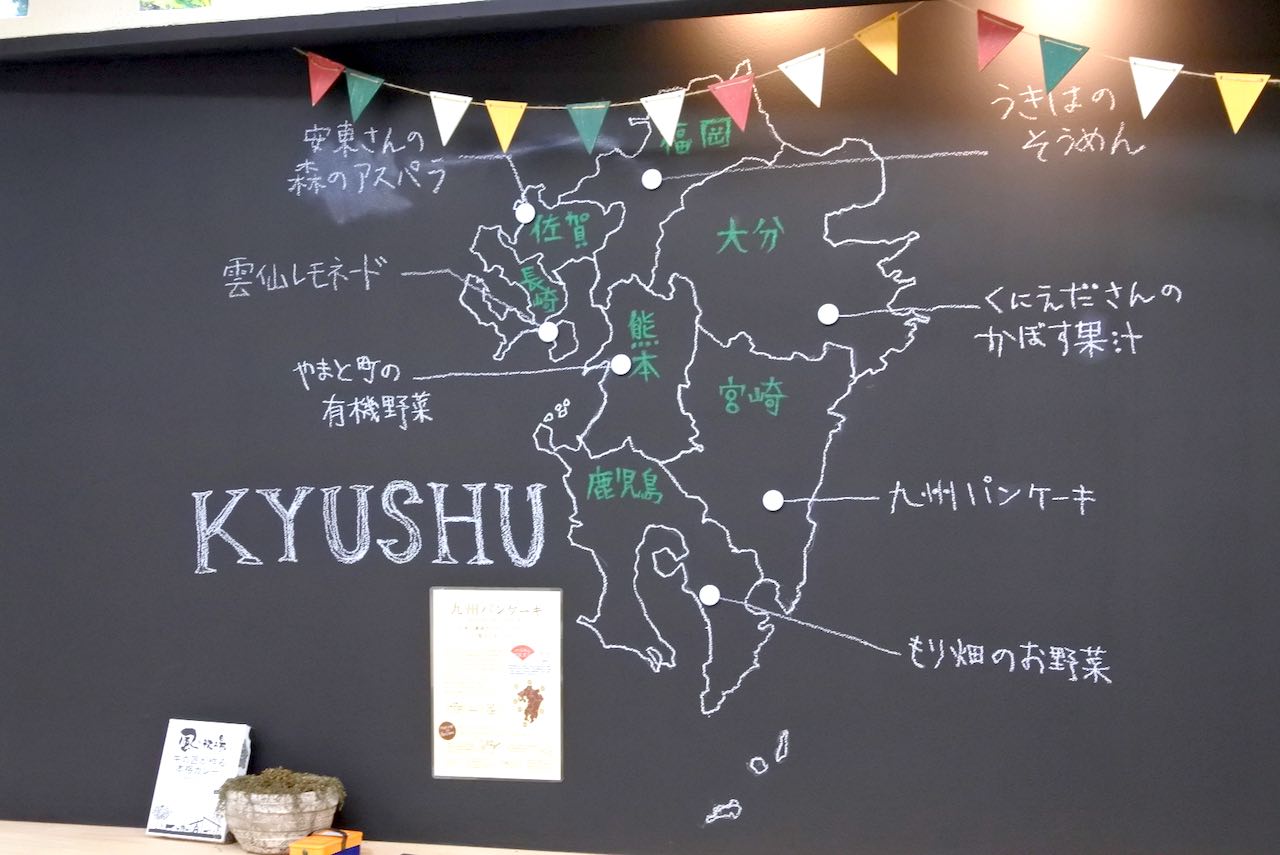 安東さんの
森のアスパラ
うきはの
そうめん
福岡
佐賀
大分
長崎
雲仙レモネード
くにえださんの
かぼす果汁
熊本
やまと町の
有機野菜
宮崎
鹿児島
KYUSHU
九州パンケーキ
もり畑のお野菜
九州パンケーキ